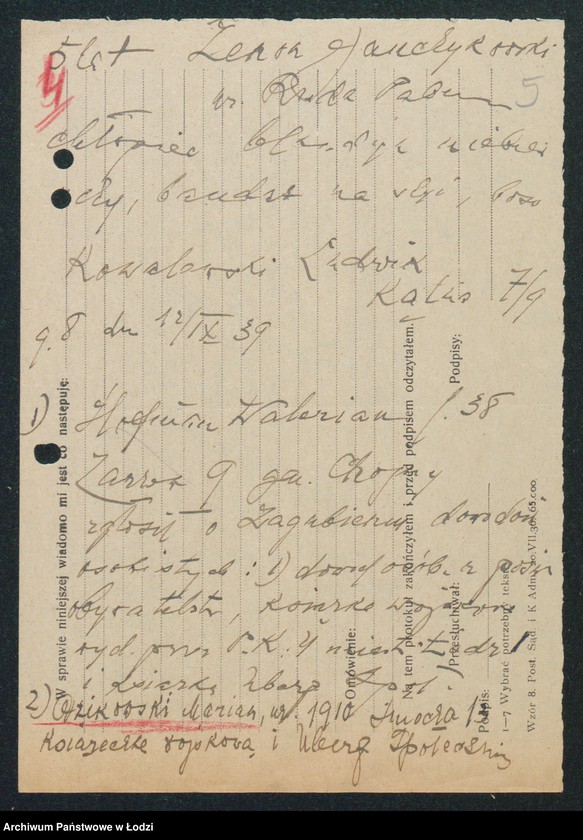 5 lat Zenon
ur. Ruda Pabian
chłopiec blondyn niebies
oczy, bandaż na szyi, boso
Kowalewski Ludwik
Kątna 7/9
g. 8 dn 12/IX 39
1) Hofman Walerian l. 38
9 gm. Chojny
zgłosił o zagubieniu dowodów
osobistych: 1) dowód osob. z
obywatelstw, książka wojskowa
wyd. przez P.K.U miasto Łódź
i książkę Ubezp. Społ.
2) Dzikowski Marian, ur. 1910
Książeczkę wojskową i Ubezp Społeczną
5
W sprawie niniejszej wiadomo mi jest co następuje:
Omówienie:
Na tem protokuł zakończyłem i przed podpisem odczytałem.
Przesłuchał:
Podpisy:
Podpis:
1—7 Wybrać potrzebny tekst.
Wzór 8. Post. Sąd. i K Adm.
Archiwum Państwowe w Łodzi